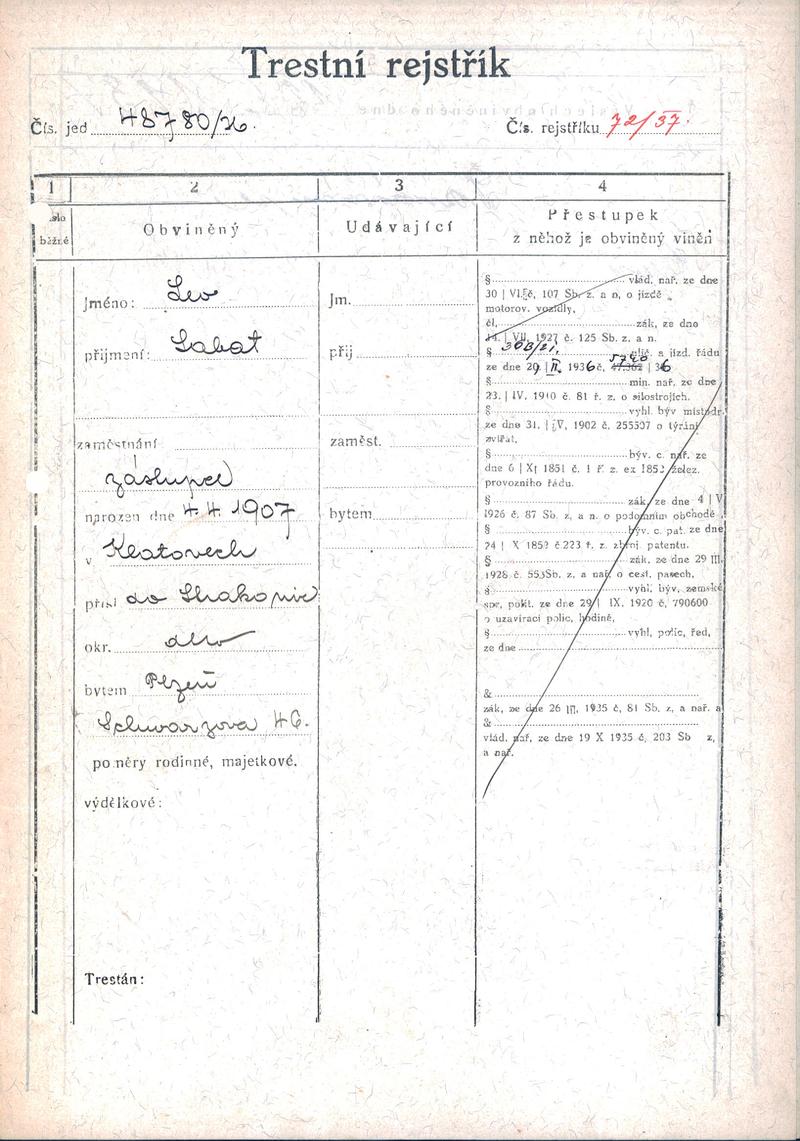 Trestní rejstřík
Čís. jed. 48780/36.
Čís. rejstříku 72/37.
1 2 3 4
běžné
Obviněný
Udávající
Přestupek
z něhož je obviněný viněn
Jméno: Leo
příjmení: Sabat
zaměstnání
zástupce
narozen dne 4. 4. 1907
v Klatovech
přísl do Strakonic
okr. dtto
bytem Plzeň
Schwarzova 46.
poměry rodinné, majetkové.
výdělkové:
Trestán:
Jm.
příj
zaměst.
bytem
§ vlád. nař. ze dne
30 | VI. č, 107 Sb. z. a n, o jízdě
motorov. vozidly,
čl, zák, ze dne
14. | VII, 1927 č. 125 Sb. z. a n.
§ 30B/21. ulič. a jízd. řádu
ze dne 29 | II. 1936 č, 5740 47.362 | 36
§ min. nař. ze dne
23. | IV. 1910 č. 81 ř. z. o silostrojích.
§ vyhl. býv místodr.
ze dne 31. | IV, 1902 č. 255507 o týrání
zvířat,
§ býv. c. nař. ze
dne 6 | XI 1851 č. 1 ř. z. ex 1852 želez.
provozního řádu.
§ zák, ze dne 4 | V
1926 č. 87 Sb. z, a n. o podomním obchodě
§ býv. c. pat. ze dne
24 | X 1852 č. 223 ř. z. zbroj. patentu.
§ zák. ze dne 29 III.
1928 č. 55 Sb. z, a nař. o cest. pasech,
§ vyhl. býv, zemské
spr, polit. ze dne 29 | IX. 1920 č, 790600
o uzavírací polic, hodině,
§ vyhl, polic, řed,
ze dne
&
zák, ze dne 26 III, 1935 č, 81 Sb. z, a nař. a
&
vlád. nař, ze dne 19 X 1935 č, 203 Sb z,
a nař.